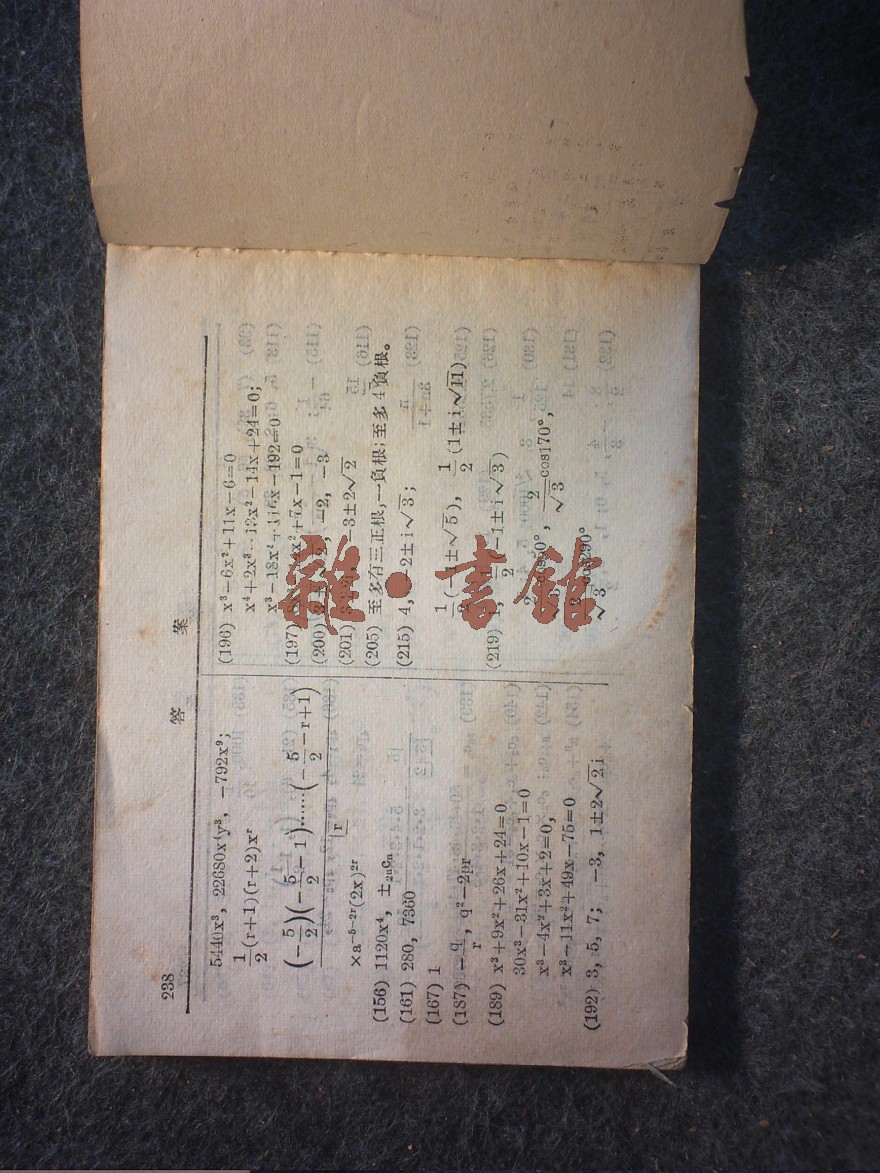 238
答 案
5440x³, 22680x⁴y³, −792x⁹;
1/2 (r+1)(r+2)xʳ
(−5/2)(−5/2−1)……(−5/2−r+1)
|r
×a⁻⁵⁻²ʳ(2x)²ʳ
(156) 1120x⁴, ±₂ₙcₙ
(161) 280, 7360
(167) 1
(187) −q/r, q²−2pr
(189) x³+9x²+26x+24=0
30x³−31x²+10x−1=0
x³−4x²+3x+2=0,
x³−11x²+49x−75=0
(192) 3, 5, 7; −3, 1±2√2 i
(196) x³−6x²+11x−6=0
x⁴+2x³−13x²−14x+24=0;
−192=0
(197) x²+7x−1=0
(200) −2, −3
(201) −3±2√2
(205) 至多有三正根,一負根;至多4負根。
(215) 4, 2±i√3;
1/2(−1±√5), 1/2(1±i√11)
(219) 1, 1/2(−1±i√3)
cos50°, 2/√3 cos170°,
2/√3 cos290°
雒•書館